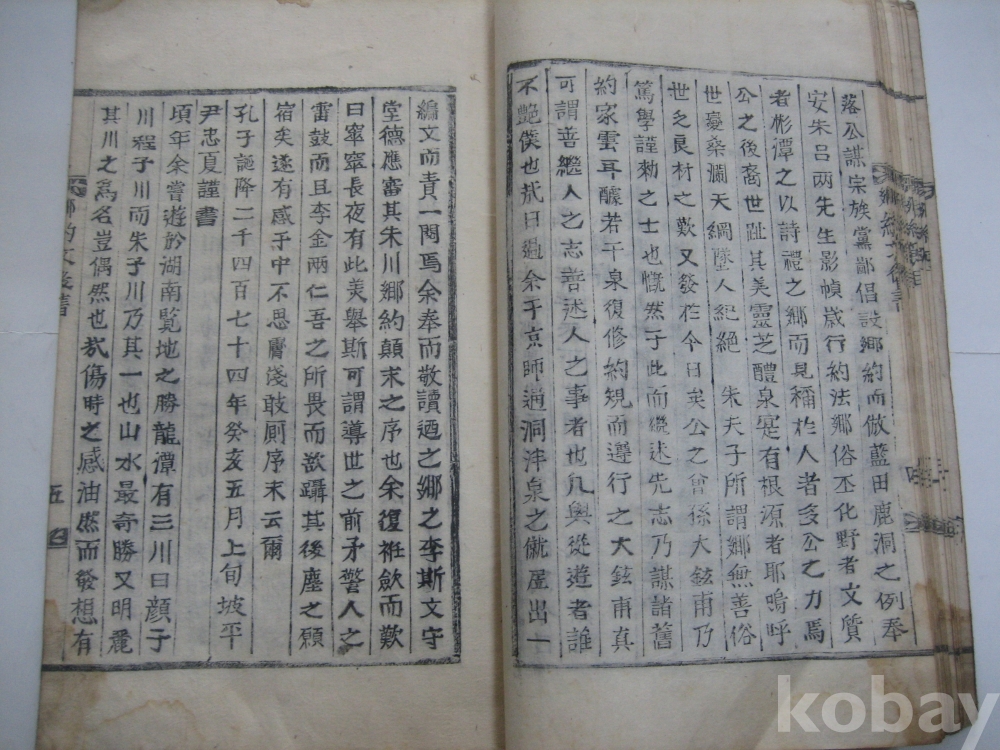 落公謀宗族黨鄙倡設鄉約而倣藍田鹿洞之例奉
安朱呂兩先生影幀歲行約法鄉俗丕化野者文質
者彬潭之以詩禮之鄉而見稱於人者多公之力焉
公之後裔世趾其美靈芝醴泉寔有根源者耶嗚呼
世憂桑瀾天綱墜人紀絕 朱夫子所謂鄉無善俗
世乏良材之歎又發在今日矣公之曾孫大鉉甫乃
篤學謹勅之士也慨然于此而繼述先志乃謀諸舊
約家雲耳醵若干泉復修約規而遵行之大鉉甫真
可謂善繼人之志善述人之事者也凡與從遊者誰
不艶僕也哉日過余于京師通洞泮泉之僦屋出一
編文而責一閱焉余奉而敬讀迺之鄉之李斯文守
堂德應審其朱川鄉約顛末之序也余復袵歛而歎
曰寧寧長夜有此美舉斯可謂導世之前矛警人之
雷鼓而且李金兩仁吾之所畏而欲躡其後塵之願
宿矣遂有感于中不思膚淺敢厠序末云爾
孔子誕降二千四百七十四年癸亥五月上旬坡平
尹忠夏謹書
頃年余嘗遊於湖南覽地之勝龍潭有三川曰顏子
川程子川而朱子川乃其一也山水最奇勝又明麗
其川之爲名豈偶然也哉傷時之感油然而發想有
鄉約文後書
五